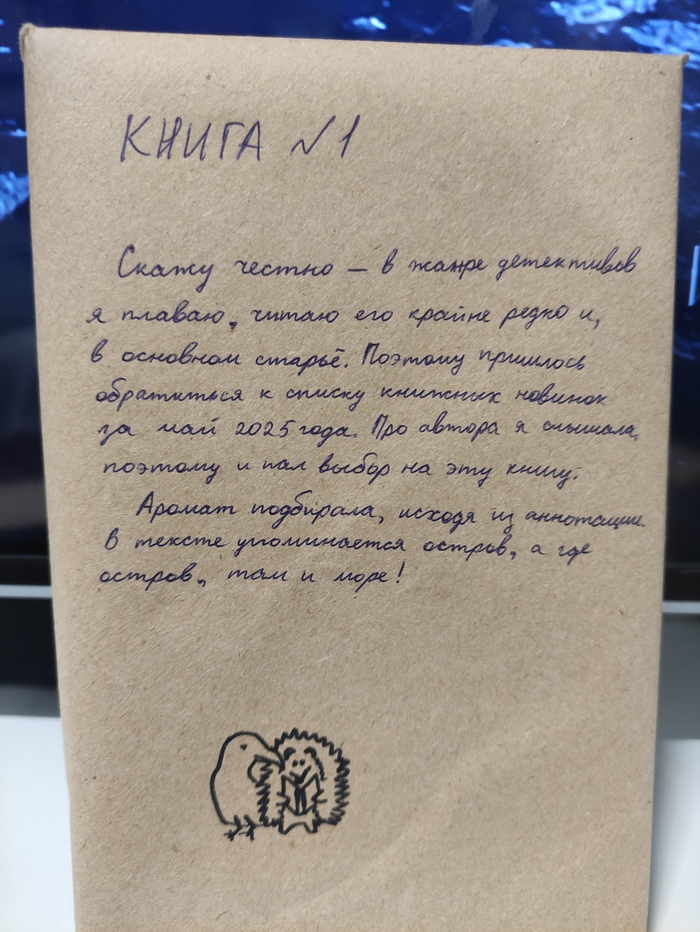 КНИГА №1
Скажу честно — в жанре детективов
я плаваю, читаю его крайне редко и,
в основном старьё. Поэтому пришлось
обратиться к списку книжных новинок
за май 2025 года. Про автора я слышала,
поэтому и пал выбор на эту книгу.
Аромат подбирала, исходя из аннотации.
В тексте упоминается остров, а где
остров, там и море!